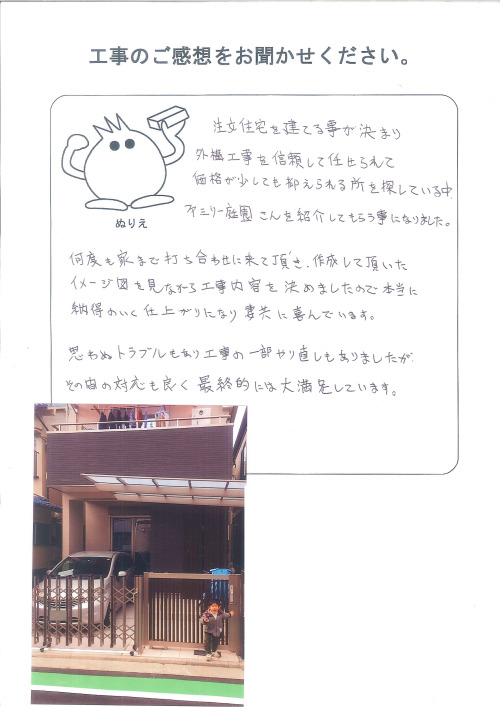 工事のご感想をお聞かせください。
注文住宅を建てる事が決まり
外構工事を信頼して任せられて
価格が少しでも抑えられる所を探している中、
ファミリー庭園さんを紹介してもらう事になりました。
ぬりえ
何度も家まで打ち合わせに来て頂き、作成して頂いた
イメージ図を見ながら工事内容を決めましたので本当に
納得のいく仕上がりになり妻共に喜んでいます。
思わぬトラブルもあり工事の一部やり直しもありましたが、
その後の対応も良く最終的には大満足しています。